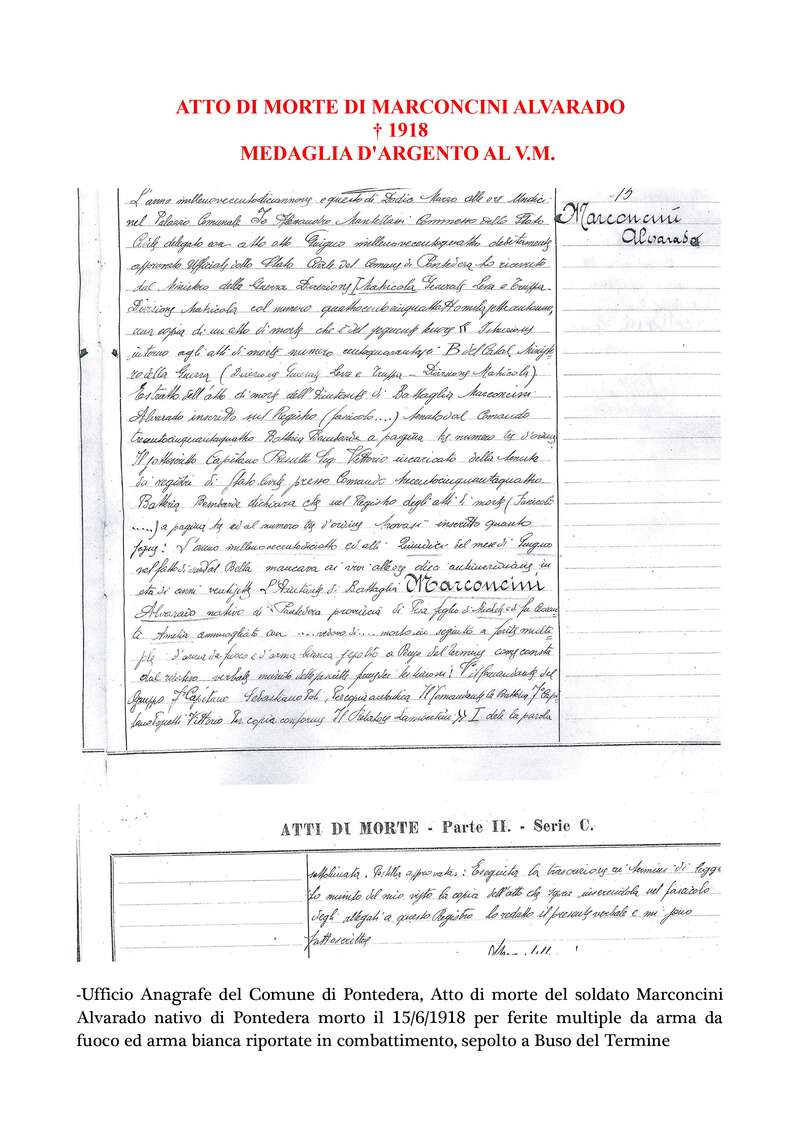 ATTO DI MORTE DI MARCONCINI ALVARADO
† 1918
MEDAGLIA D'ARGENTO AL V.M.
15
Marconcini
Alvarado
L'anno millenovecentodiciannove e questo dì Dodici Marzo alle ore Undici
nel Palazzo Comunale Io Alessandro Mantellassi Commesso dello Stato
Civile delegato con atto Giugno millenovecentoquattro debitamente
approvato Ufficiale dello Stato Civile del Comune di Pontedera ho ricevuto
dal Ministero della Guerra Direzione Matricola Generale Leva e truppa
Divisione Matricola col numero
una copia di un atto di morte che è del seguente tenore Istruzione
intorno agli atti di morte numero B del Catal. Ministe
ro della Guerra (Direzione Generale Leva e Truppa - Divisione Matricola)
Estratto dell'atto di morte dell'Aiutante di Battaglia Marconcini
Alvarado inscritto sul Registro (fascicolo....) tenuto dal Comando
trecentocinquantaquattro Batteria Bombarde a pagina tre numero tre d'ordine
Il sottoscritto Capitano Sig. Vittorio incaricato della tenuta
dei registri di stato civile presso Comando trecentocinquantaquattro
Batteria Bombarde dichiara che nel Registro degli atti di morte (Fascicolo
.....) a pagina tre ed al numero tre d'ordine trovasi inscritto quanto
segue: L'anno millenovecentodiciotto ed alli Quindici del mese di Giugno
nel fatto di Bella mancava ai vivi alle ore dieci antimeridiane in
età di anni ventisette L'Aiutante di Battaglia Marconcini
Alvarado nativo di Pontedera provincia di Pisa figlio di Michele e di fu
Amelia ammogliato con ... vedovo di.... morto in seguito a ferite multi
ple d'arma da fuoco e d'arma bianca sepolto a Buso del Termine come consta
dal relativo verbale munito delle
Gruppo Capitano Sebastiano Poli Per copia autentica Il Comandante la Batteria Capi
tano Vittorio Per copia conforme Il Relatore Lambertini » I deli la parola
ATTI DI MORTE - Parte II. - Serie C.
sottolineata. Postilla approvata. Eseguita la trascrizione ai termini di legge
ho munito del mio visto la copia dell'atto che sopra inserendola nel fascicolo
degli allegati a questo Registro ho redatto il presente verbale e mi sono
sottoscritto
-Ufficio Anagrafe del Comune di Pontedera, Atto di morte del soldato Marconcini
Alvarado nativo di Pontedera morto il 15/6/1918 per ferite multiple da arma da
fuoco ed arma bianca riportate in combattimento, sepolto a Buso del Termine